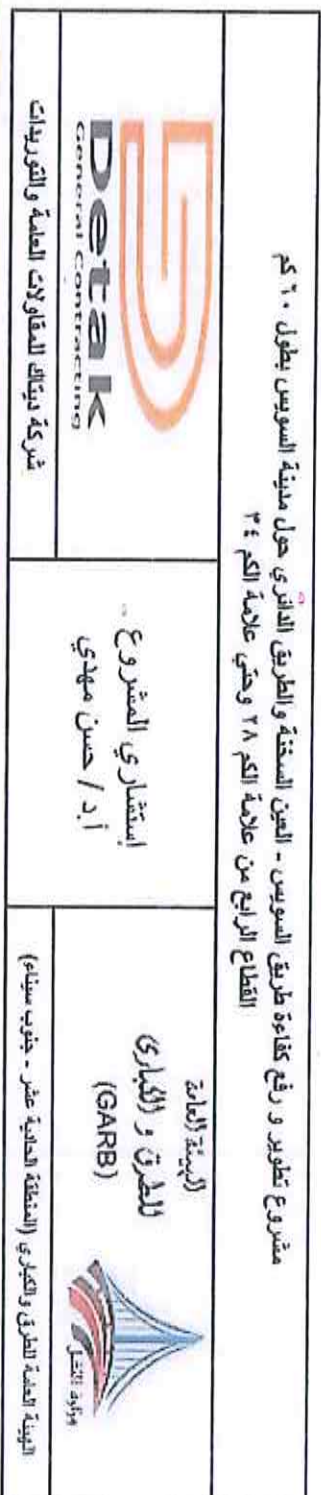 مشروع تطوير و رفع كفاءة طريق السويس - العين السخنة والطريق الدائري حول مدينة السويس بطول ٦٠ كم
القطاع الرابع من علامة الكم ٢٨ وحتي علامة الكم ٣٤
الهيئة العامة
للطرق و الكبارى
(GARB)
وزارة النقل
الهيئة العامة للطرق والكباري (المنطقة الحادية عشر - جنوب سيناء)
إستشاري المشروع -
أ.د/ حسن مهدي
Detak
General Contracting
شركة ديتاك للمقاولات العامة والتوريدات